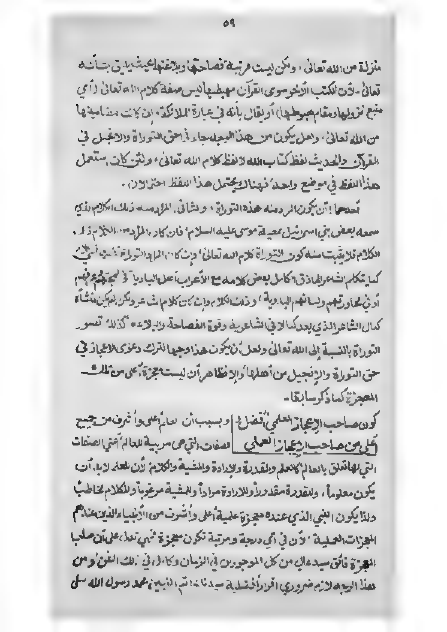 ٥٩
منزلة من الله تعالى، ولكن ليست مرتبة فصاحتها وبلاغتها بحيث يليق بشأنه
تعالى لأن الكتب الأخر سوى القرآن مهبطها ليس صفة كلام الله تعالى (أي
منبع نزولها ومقام هبوطها) أو يقال بأنه في عبارة الملائكة، إن كانت مضامينها
من الله تعالى، ولعل يكون من هذا الوجه جاء في حق التوراة والإنجيل في
القرآن والحديث لفظ كتاب الله لا لفظ كلام الله تعالى، ولئن كان استعمل
هذا اللفظ في موضع واحد، فهناك يحتمل هذا اللفظ احتمالان.
أحدهما: أن يكون المراد منه هذه التوراة، والثاني: المراد منه ذلك الكلام الذي
سمعه بعض بني إسرائيل بمعية موسى عليه السلام، فإن كان المراد
الكلام فلا يثبت منه كون التوراة كلام الله تعالى، وإن كان المراد التوراة
كما يتكلم الشاعر الحاذق الكامل بعض كلامه مع الأعراب أهل البادية في
أو في محاوراتهم ولسانهم البدوية، وذلك الكلام وإن كان كلام شاعر ولكن لم يكن منشأه
كمال الشاعر الذي يعد كمالا في الشاعرية وقوة الفصاحة والبلاغة كذلك تصور
التوراة بالنسبة إلى الله تعالى ولعل أن يكون هذا وجها لترك دعوى الإعجاز في
حق التوراة والإنجيل من أهلها، والاظهار أن ليست معجزة أعلى من تلك
المعجزة كما ذكر سابقا.
كون صاحب الإعجاز العلمي أفضل | وبسبب أن العلم أعلى وأشرف من جميع
أعلى من صاحب الإعجاز العملي | الصفات التي هي مربية للعالم أعني الصفات
التي لها تعلق بالعالم كالعلم والقدرة والإرادة والمشية والكلام لأن العلم لا بد أن
يكون معلوما، والقدرة مقدورا والإرادة مرادا والمشية مرغوبا والكلام مخاطبا
ولذا يكون النبي الذي عنده معجزة علمية أعلى وأشرف من الأنبياء الذين عندهم
المعجزات العملية لأن في أي درجة ومرتبة تكون معجزة فهي تدل على أن صاحب
المعجزة فائق سيد عالي من كل الموجودين في الزمان وكامل في ذلك الفن، ومن
هذا الوجه لازم ضروري إقرار أفضلية سيدنا خاتم النبيين محمد رسول الله صلى